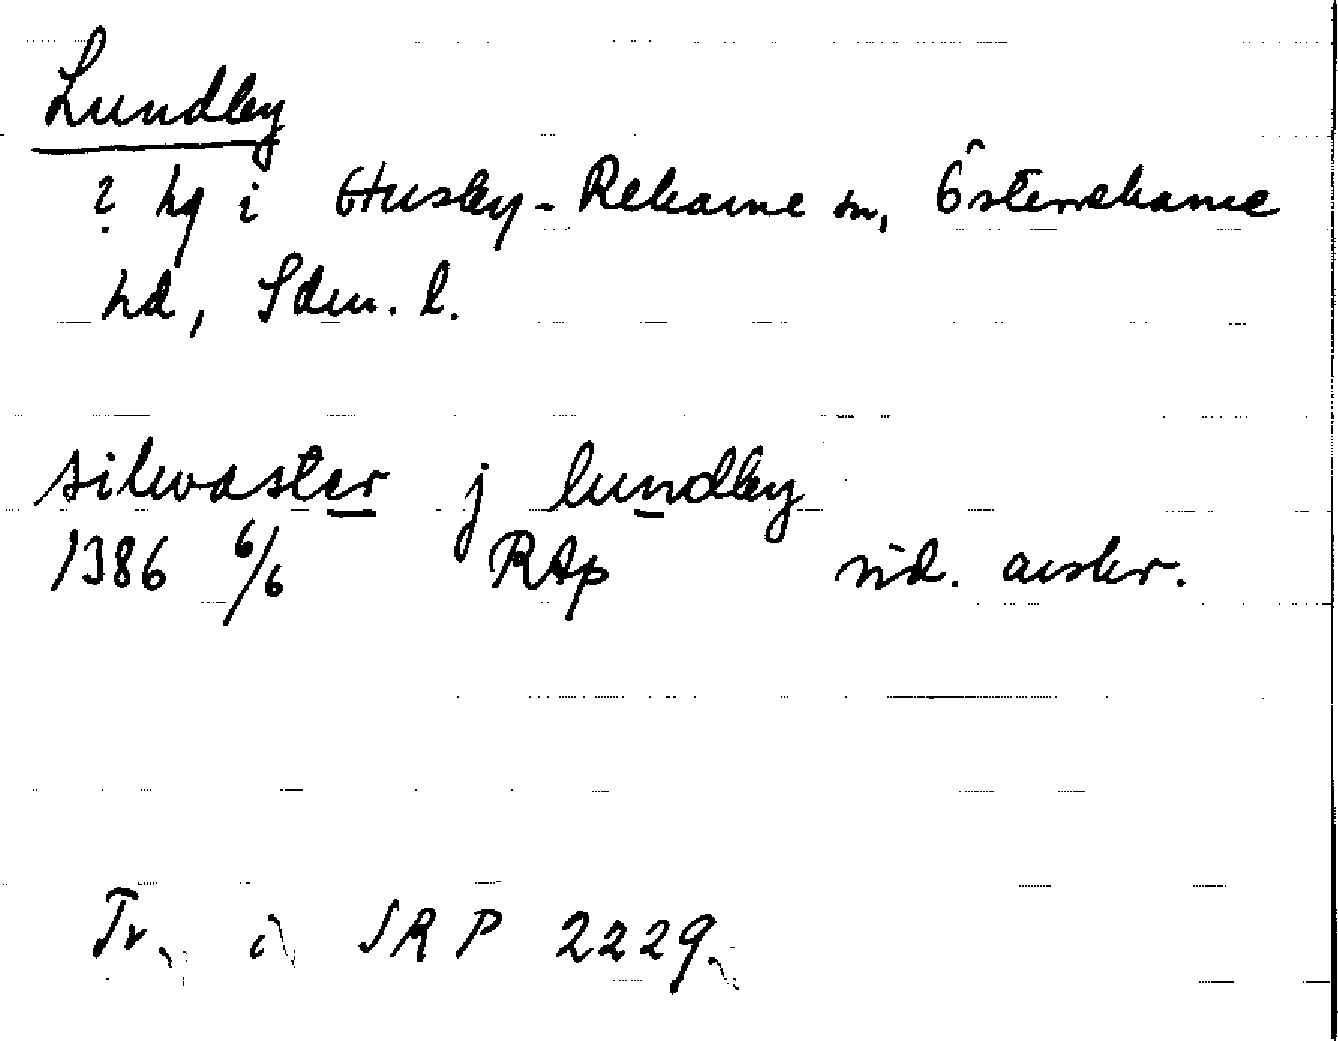 Lundby
? hg i Husby-Rekarne sn, Österrekarne
hd, Sdm. l.
silwaster j lundby
1386 6/6 RAp vid. avskr.
Tr. i SRP 2229.